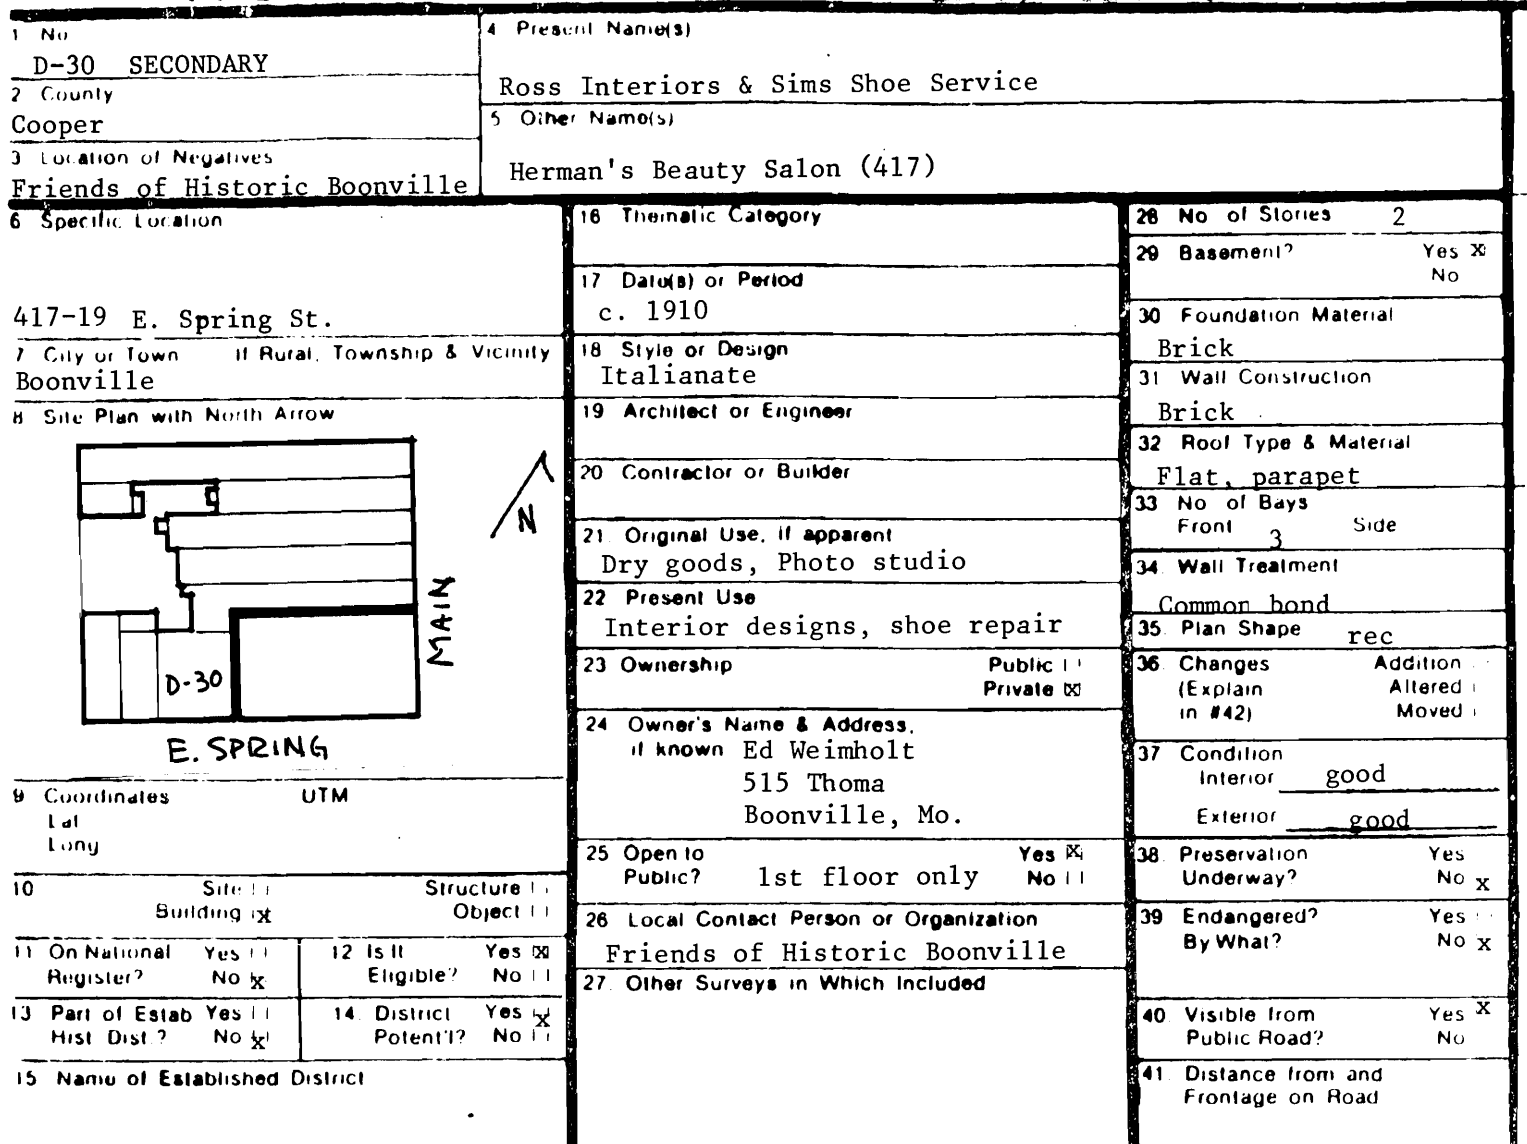 1 No
D-30 SECONDARY
2 County
Cooper
3 Location of Negatives
Friends of Historic Boonville
4 Present Name(s)
Ross Interiors & Sims Shoe Service
5 Other Name(s)
Herman's Beauty Salon (417)
6 Specific Location
417-19 E. Spring St.
7 City or Town If Rural, Township & Vicinity
Boonville
8 Site Plan with North Arrow
N
MAIN
D-30
E. SPRING
9 Coordinates UTM
Lat
Long
10 Site Structure
Building x Object
11 On National Yes
Register? No x
12 Is It Yes x
Eligible? No
13 Part of Estab Yes
Hist. Dist.? No x
14. District Yes x
Potent'l? No
15 Name of Established District
16 Thematic Category
17 Date(s) or Period
c. 1910
18 Style or Design
Italianate
19 Architect or Engineer
20 Contractor or Builder
21. Original Use, if apparent
Dry goods, Photo studio
22 Present Use
Interior designs, shoe repair
23 Ownership Public
Private x
24 Owner's Name & Address,
if known Ed Weimholt
515 Thoma
Boonville, Mo.
25 Open to Yes x
Public? 1st floor only No
26 Local Contact Person or Organization
Friends of Historic Boonville
27. Other Surveys in Which Included
28 No of Stories 2
29 Basement? Yes x
No
30 Foundation Material
Brick
31 Wall Construction
Brick
32 Roof Type & Material
Flat, parapet
33 No of Bays
Front 3 Side
34. Wall Treatment
Common bond
35. Plan Shape rec
36. Changes Addition
(Explain Altered
in #42) Moved
37 Condition
Interior good
Exterior good
38. Preservation Yes
Underway? No x
39 Endangered? Yes
By What? No x
40. Visible from Yes x
Public Road? No
41. Distance from and
Frontage on Road